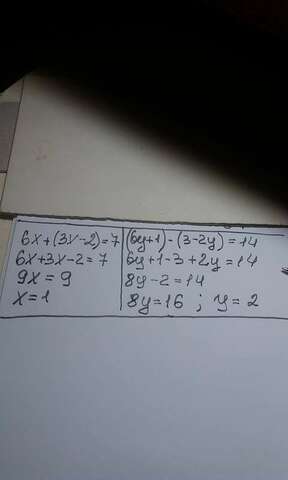 6x+(3x-2)=7
6x+3x-2=7
9x=9
x=1
(6y+1)-(3-2y)=14
6y+1-3+2y=14
8y-2=14
8y=16 ; y=2